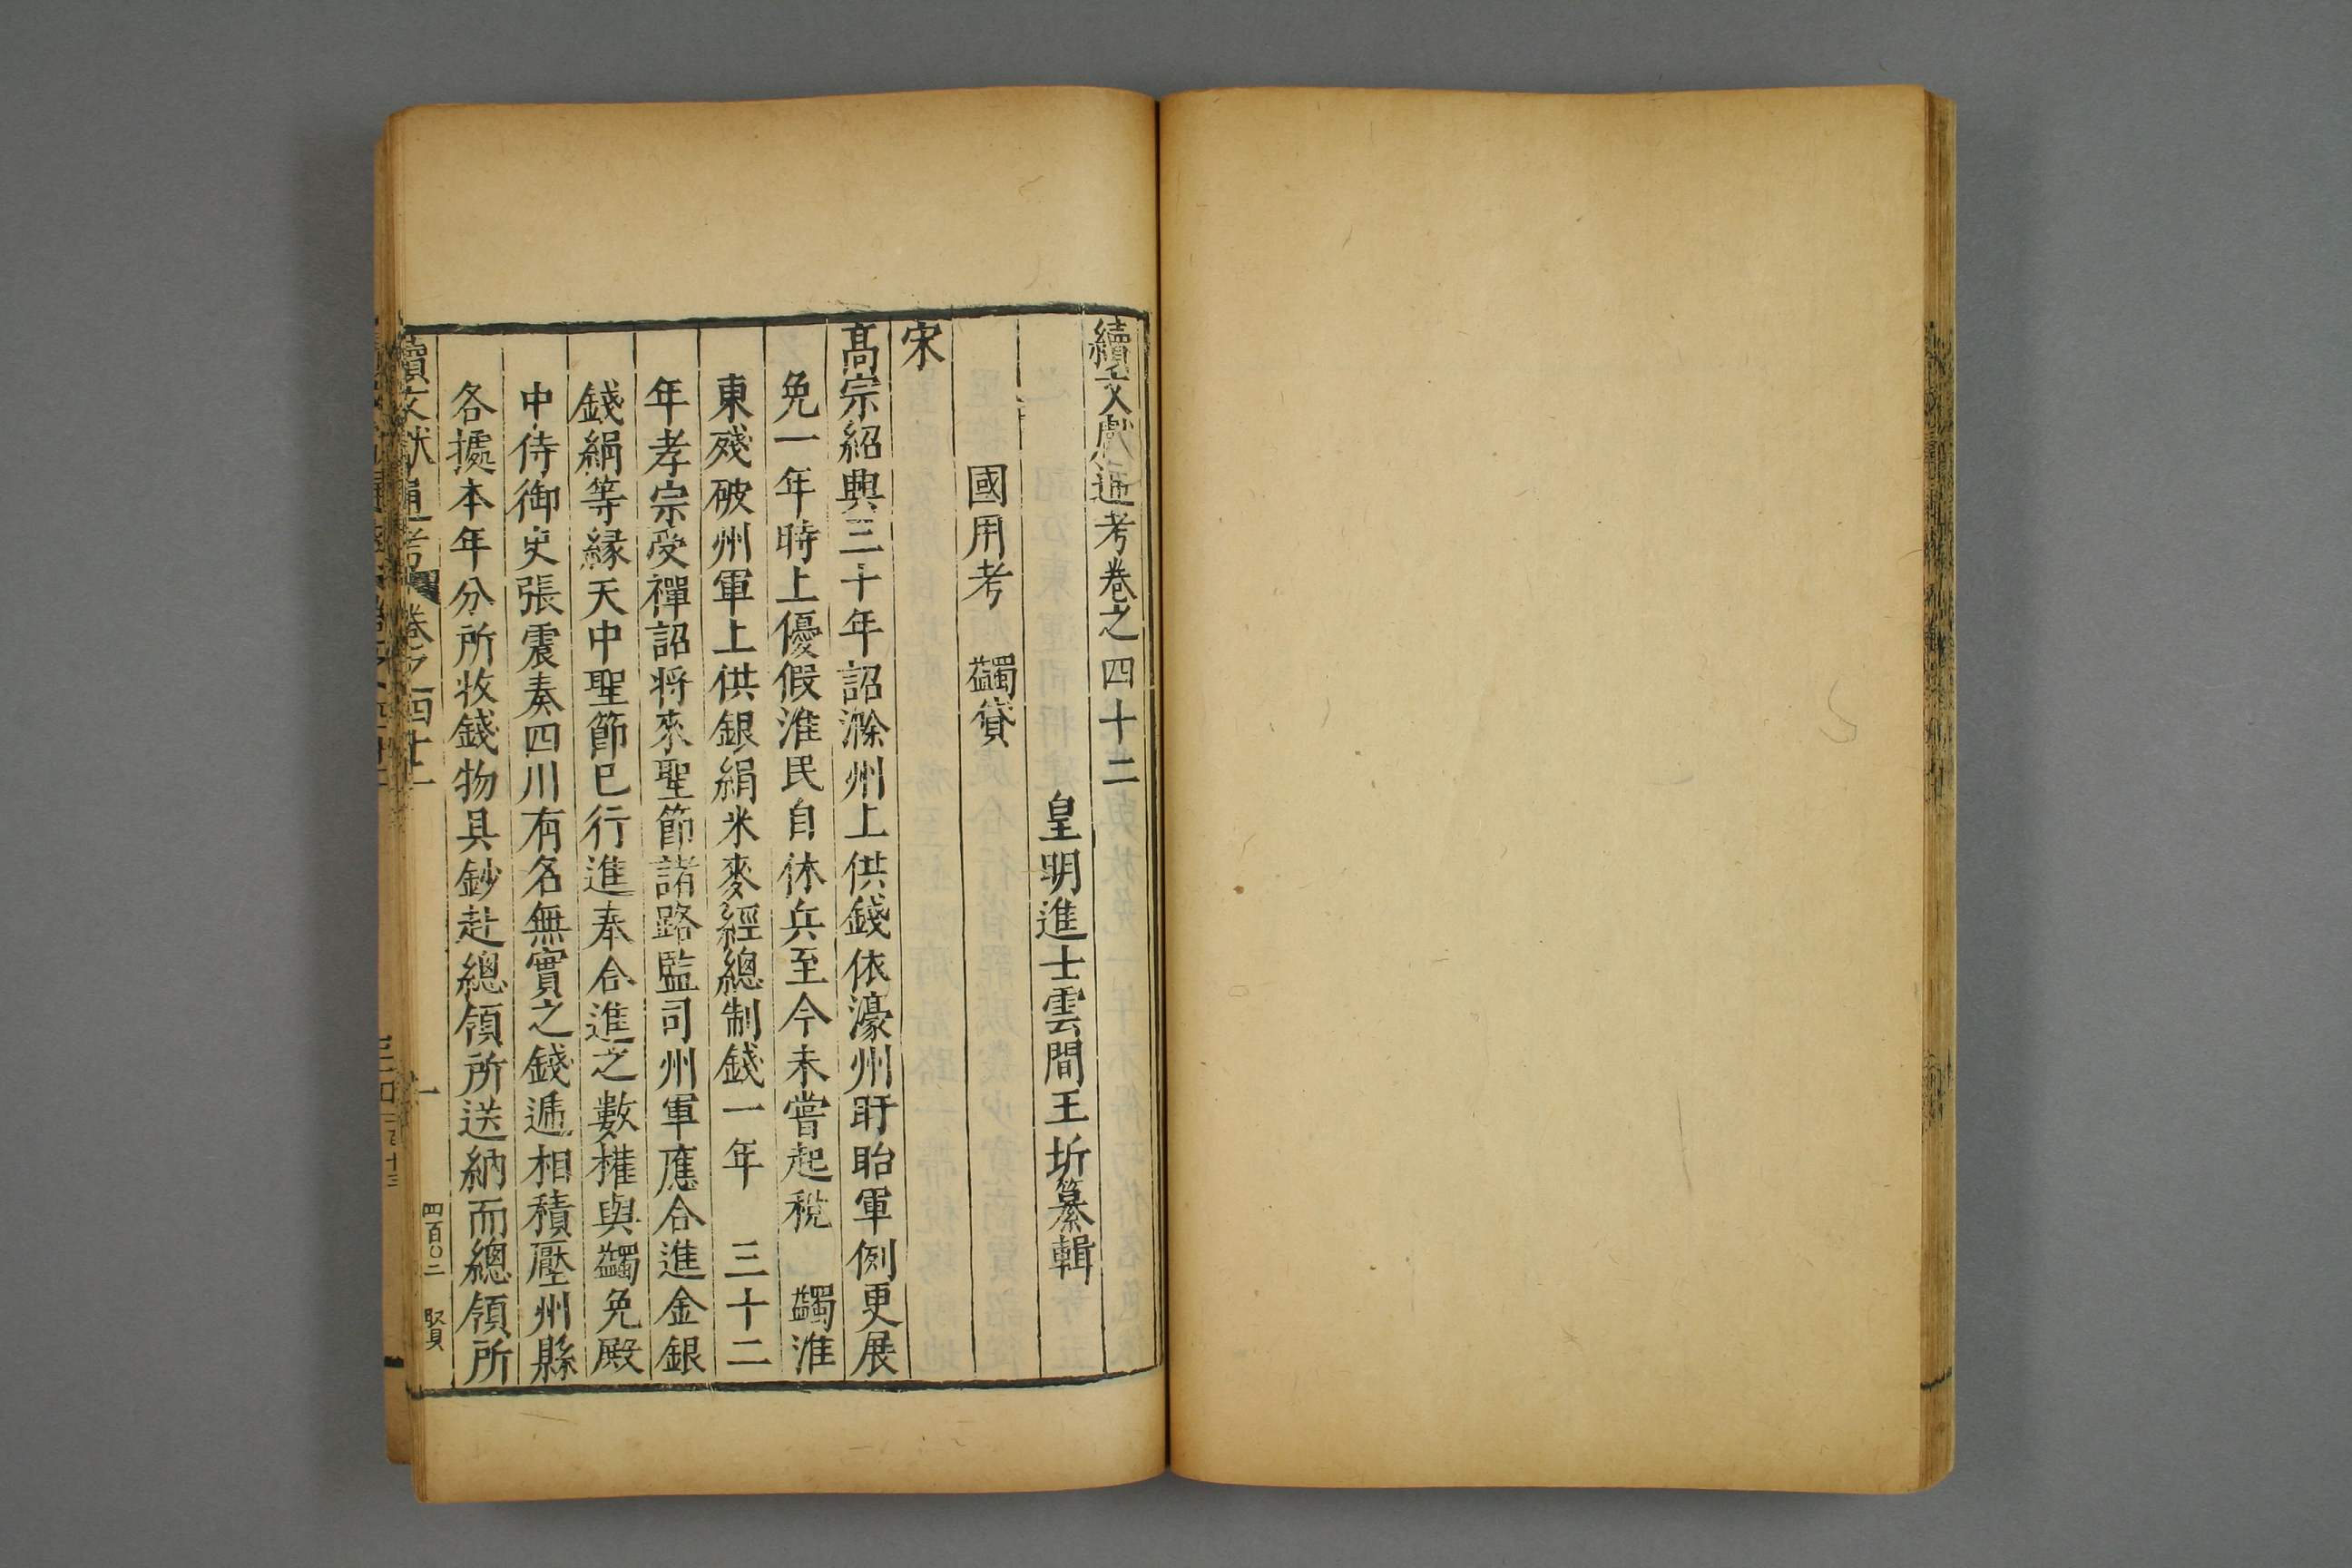 續文獻通考卷之四十二
皇明進士雲間王圻纂輯
國用考　蠲貸
宋
髙宗紹興三十年詔滁州上供錢依濠州盱眙軍例更展
免一年時上優假淮民自休兵至今未嘗起稅　蠲淮
東殘破州軍上供銀絹米麥經總制錢一年　三十二
年孝宗受禪詔将來聖節諸路監司州軍應合進金銀
錢絹等縁天中聖節已行進奉合進之數權與蠲免殿
中侍御史張震奏四川有名無實之錢遞相積壓州縣
各㨿本年分所收錢物具鈔赴總領所送納而總領所
續文獻通考　卷之四十二　一　四百〇二　賢